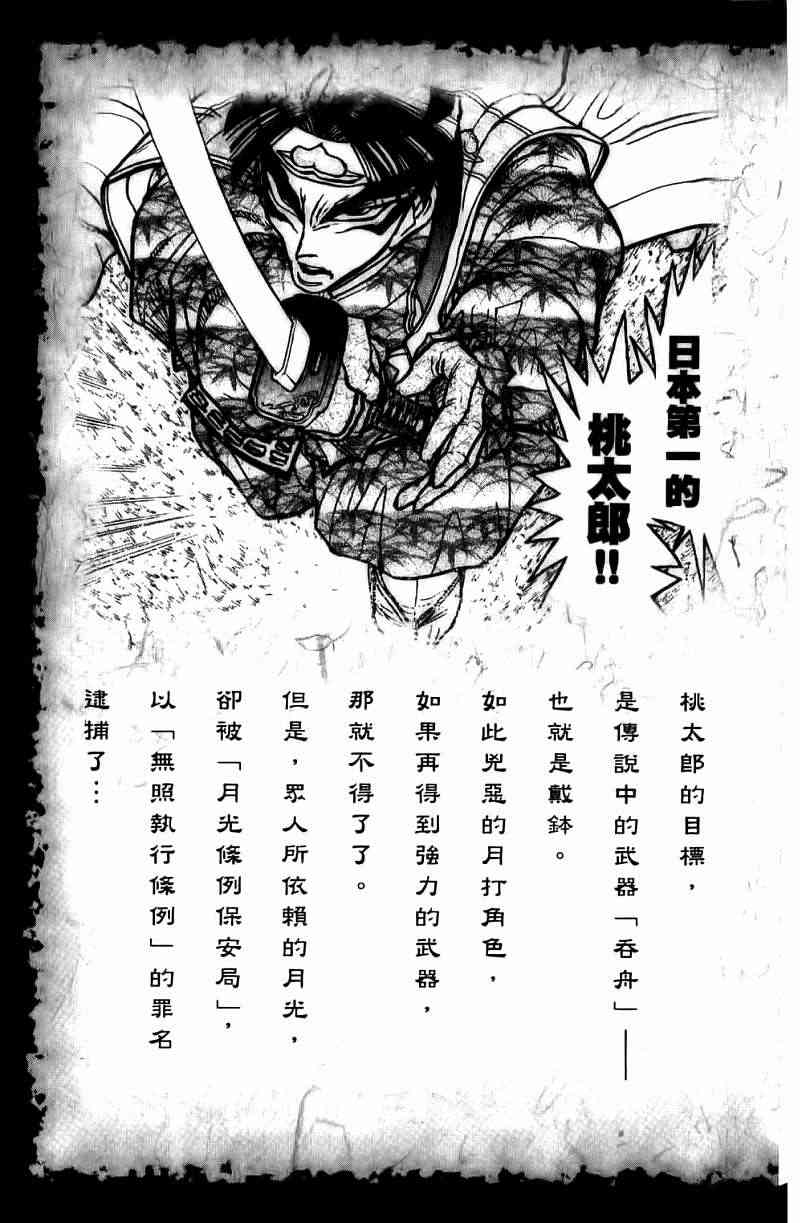 日本第一的
桃太郎!!
桃太郎的目標，
是傳說中的武器「吞舟」——
也就是戴鉢。
如此兇惡的月打角色，
如果再得到強力的武器，
那就不得了了。
但是，眾人所依賴的月光，
卻被「月光條例保安局」，
以「無照執行條例」的罪名
逮捕了…